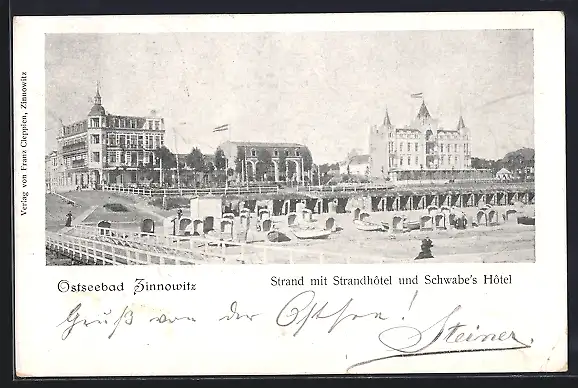 Verlag von Franz Cleppien, Zinnowitz
Ostseebad Zinnowitz
Strand mit Strandhôtel und Schwabe's Hôtel
Gruß von der Ostsee!
Steiner.